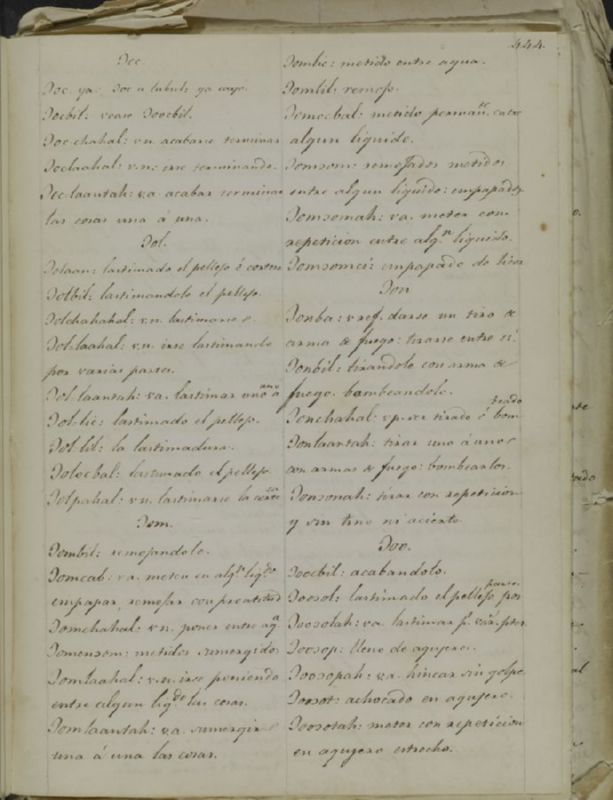 444.
Joc
Joc. ya: Joc u tubul: ya cayo.
Jocbil: vease Joocbil.
Joc-chahal: v.n. acabarse terminar
Joclaahal: v.n: irse terminando.
Joc-laantah: v.a. acabar terminar
las cosas una á una.
Jol.
Jolaan: lastimado el pellejo ó
Jolbil: lastimandolo el pellejo.
Jolchahahal: v.n. lastimarse
Jol-laahal: v.n. irse lastimando
por varias partes.
Jol-laantah: va. lastimar uno á uno
Jol-lic: lastimado el pellejo.
Jol-lil: la lastimadura.
Jolocbal: lastimado el pellejo
Jolpahal: v.n. lastimarse la
Jom.
Jombil: remojandolo.
Jomcab: va. meter en algn. ligdo.
empapar, remojar con prontitud
Jomchahal: v.n. poner entre ag.
Jomonsom: metidos sumergidos
Jomlaahal: v.n. irse poniendo
entre algun ligdo. las cosas.
Jomlaantah: v.a. sumergir
una á una las cosas.
Jomlic: metido entre agua.
Jomlil: remojo.
Jomocbal: metido permante. entre
algun liquido.
Jomsom: remojados metidos
entre algun liquido: empapados
Jomsomah: va. meter con
repeticion entre algn. liquido.
Jomsomci: empapado de licor
Jon
Jonba: v ref. darse un tiro de
arma de fuego: tirarse entre si.
Jonbil: tirandolo con arma de
fuego. bombeandolo.
Jonchahal: v p. ser tirado ó bombeado
Jonlaantah: tirar uno á uno
con armas de fuego: bombearlos.
Jonsonah: tirar con repeticion
y sin tino ni acierto.
Joo.
Joocbil: acabandolo.
Joosol: lastimado el pellejo por partes
Joosolah: va. lastimar p. var. ptes.
Joosop: lleno de agujeros.
Joosopah: v.a. hincar sin golpe.
Joosot: achocado en agujero.
Joosotah: meter con repeticion
en agujero estrecho.